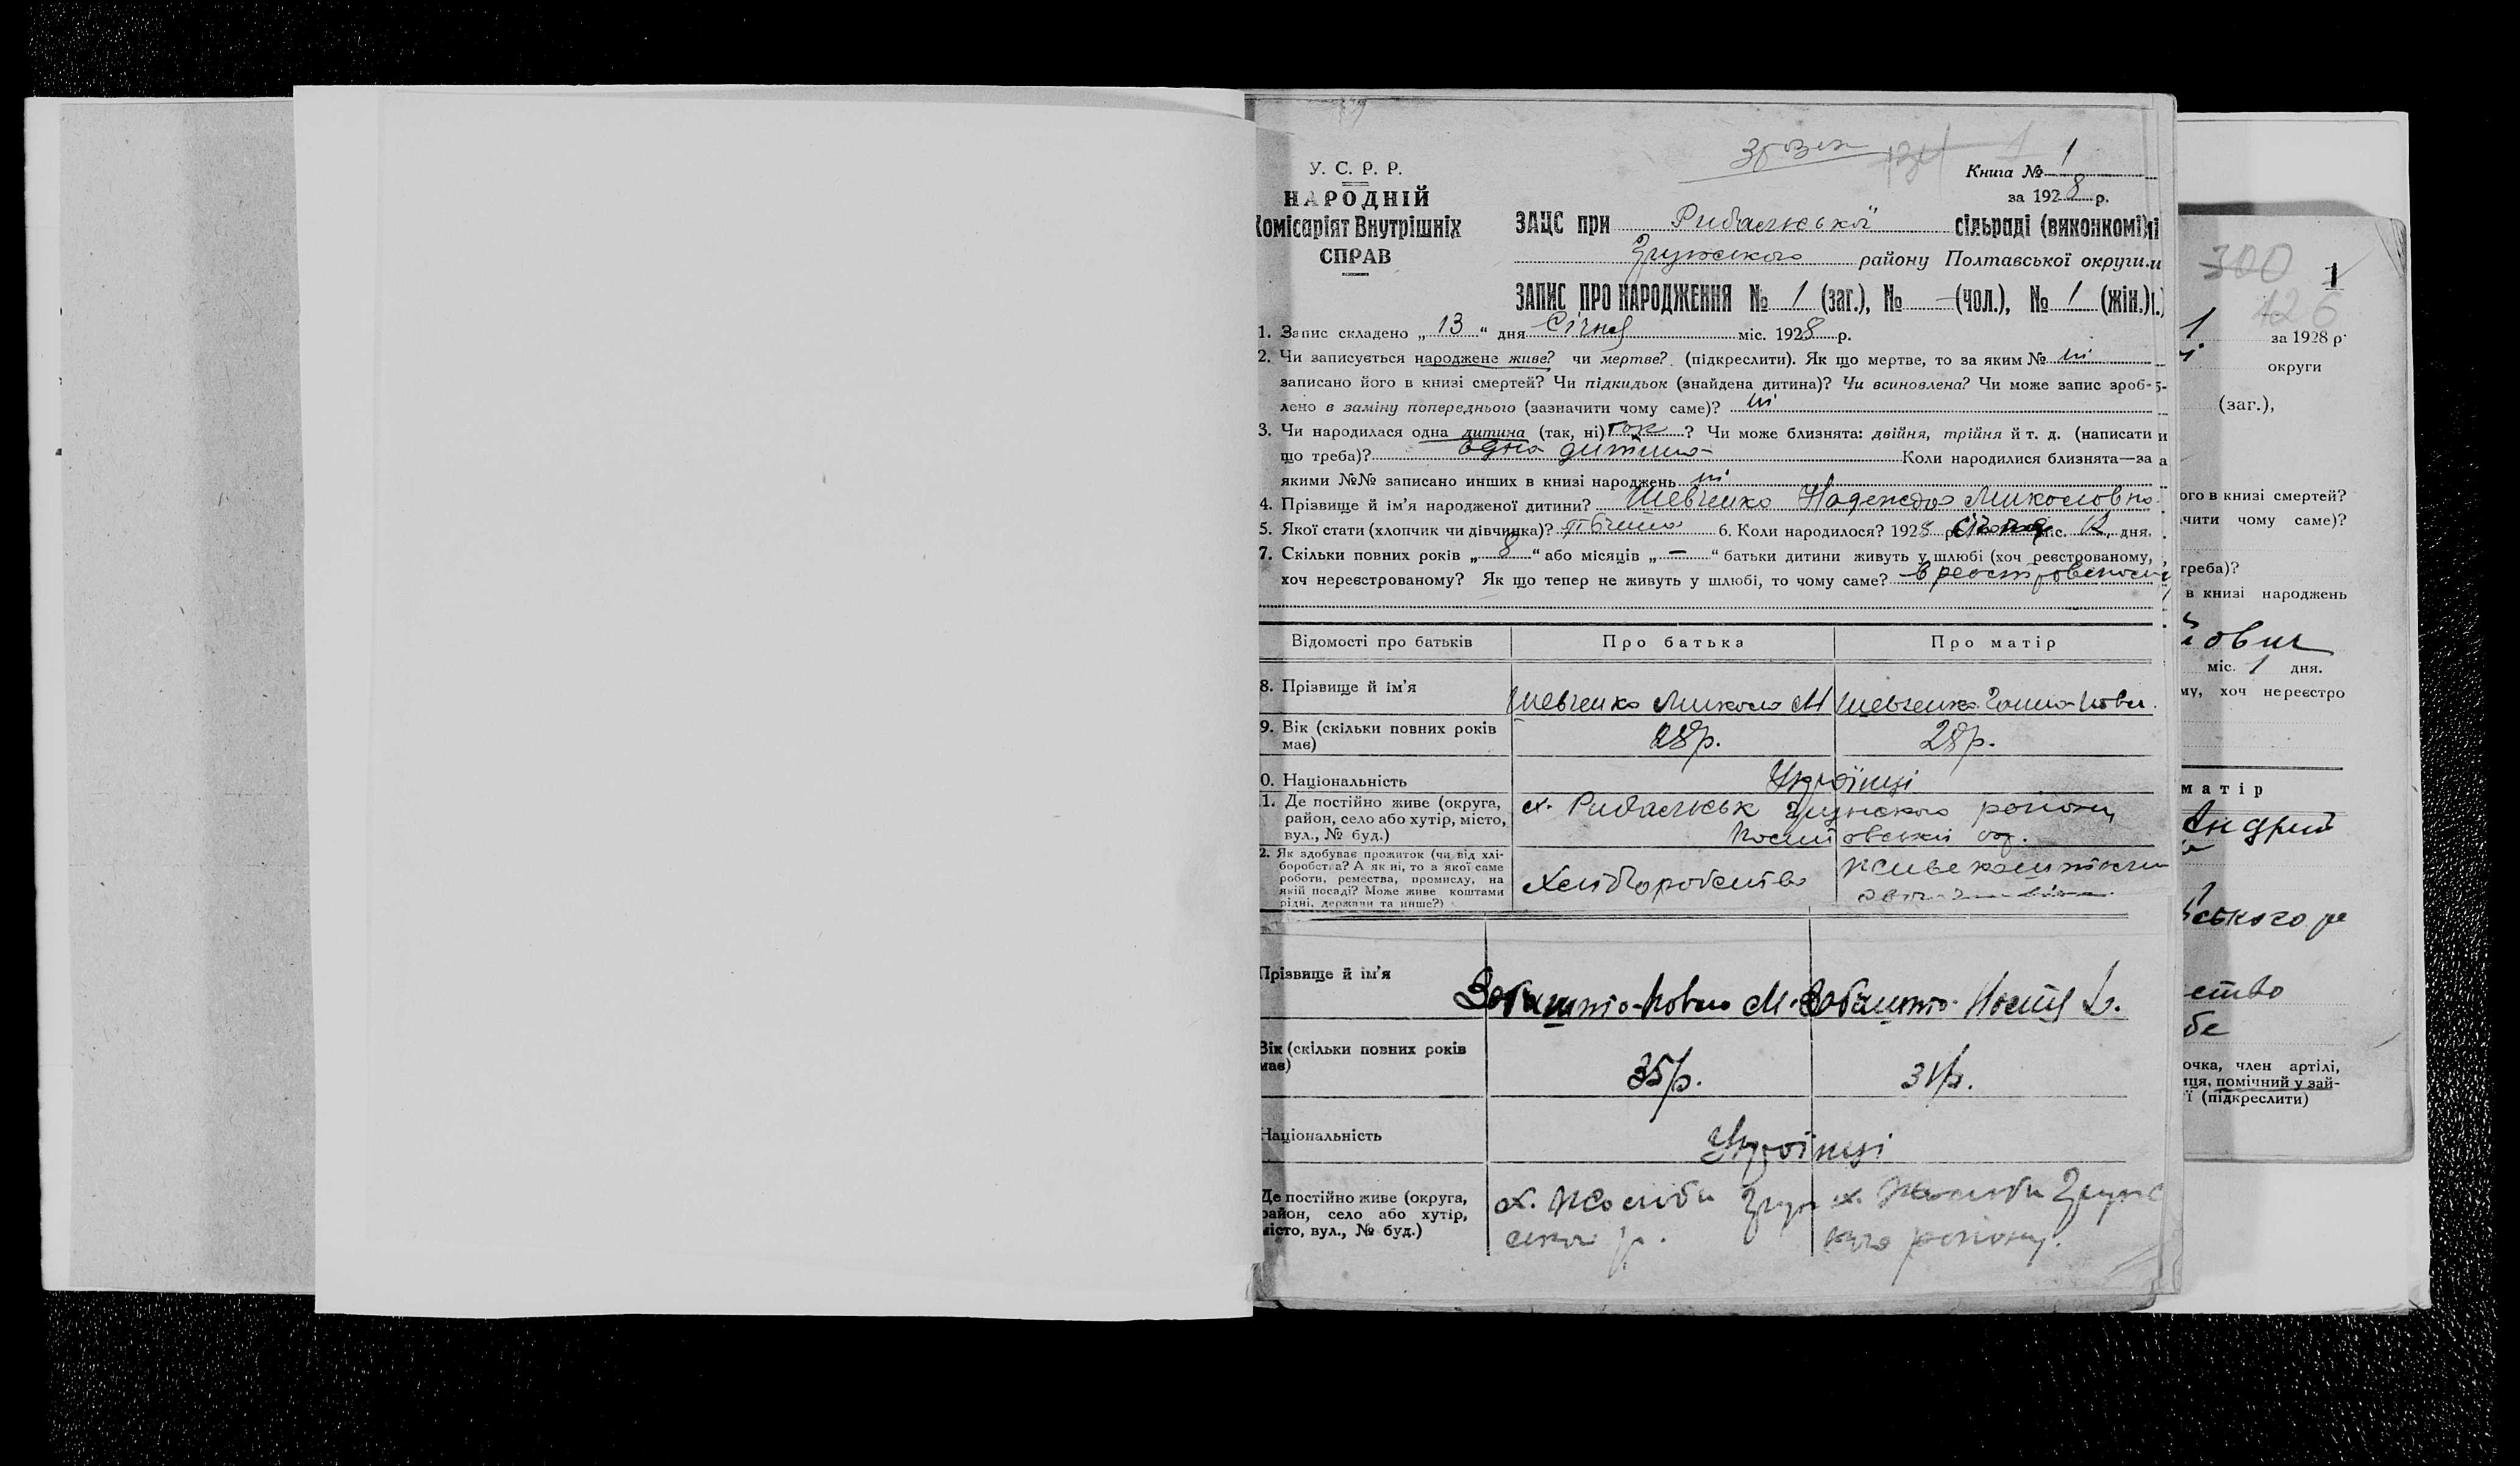 зразок
1
Книга № 1
У. С. Р. Р.
за 1928 р.
НАРОДНІЙ
Комісаріят Внутрішніх
СПРАВ
ЗАЦС при Рибальської сільраді (виконкомі)
району Полтавської округи
ЗАПИС ПРО НАРОДЖЕННЯ № 1 (заг.), № — (чол.), № 1 (жін.)
1. Запис складено „ 13 “ дня Січня міс. 1928 р.
2. Чи записується народжене живе? чи мертве? (підкреслити). Як що мертве, то за яким № ні
записано його в книзі смертей? Чи підкидьок (знайдена дитина)? Чи всиновлена? Чи може запис зроб-
лено в заміну попереднього (зазначити чому саме)? ні
3. Чи народилася одна дитина (так, ні) так ? Чи може близнята: двійня, трійня й т. д. (написати
що треба)? одна дитина Коли народилися близнята—за
якими №№ записано инших в книзі народжень ні
4. Прізвище й ім’я народженої дитини? Шевченко Надежда Миколовна
5. Якої стати (хлопчик чи дівчинка)? 6. Коли народилося? 1928 р. січня міс. 12 дня.
7. Скільки повних років „ 8 “ або місяців „ — “ батьки дитини живуть у шлюбі (хоч реєстрованому,
хоч нереєстрованому? Як що тепер не живуть у шлюбі, то чому саме? в
Відомості про батьків Про батька Про матір
8. Прізвище й ім’я Шевченко Микола М Шевченко Ганна
9. Вік (скільки повних років має) 28 р. 28 р.
0. Національність Українці
1. Де постійно живе (округа, район, село або хутір, місто, вул., № буд.) х. Рибальськ району
2. Як здобуває прожиток (чи від хлі-
боробства? А як ні, то з якої саме
роботи, ремества, промислу, на
якій посаді? Може живе коштами
рідні, держави та инше?) Хліборобство живе коштами
Прізвище й ім’я
Вік (скільки повних років має) 35 р. 31 р.
Національність Українці
Де постійно живе (округа,
район, село або хутір,
місто, вул., № буд.) х. х.
району.
300
1
126
1
за 1928 р.
округи
(заг.),
ого в книзі смертей?
чити чому саме)?
треба)?
в книзі народжень
ович
міс. 1 дня.
му, хоч нереєстро
матір
Андрій
ського ра
ство
бе
очка, член артілі,
иця, помічний у зай-
ї (підкреслити)